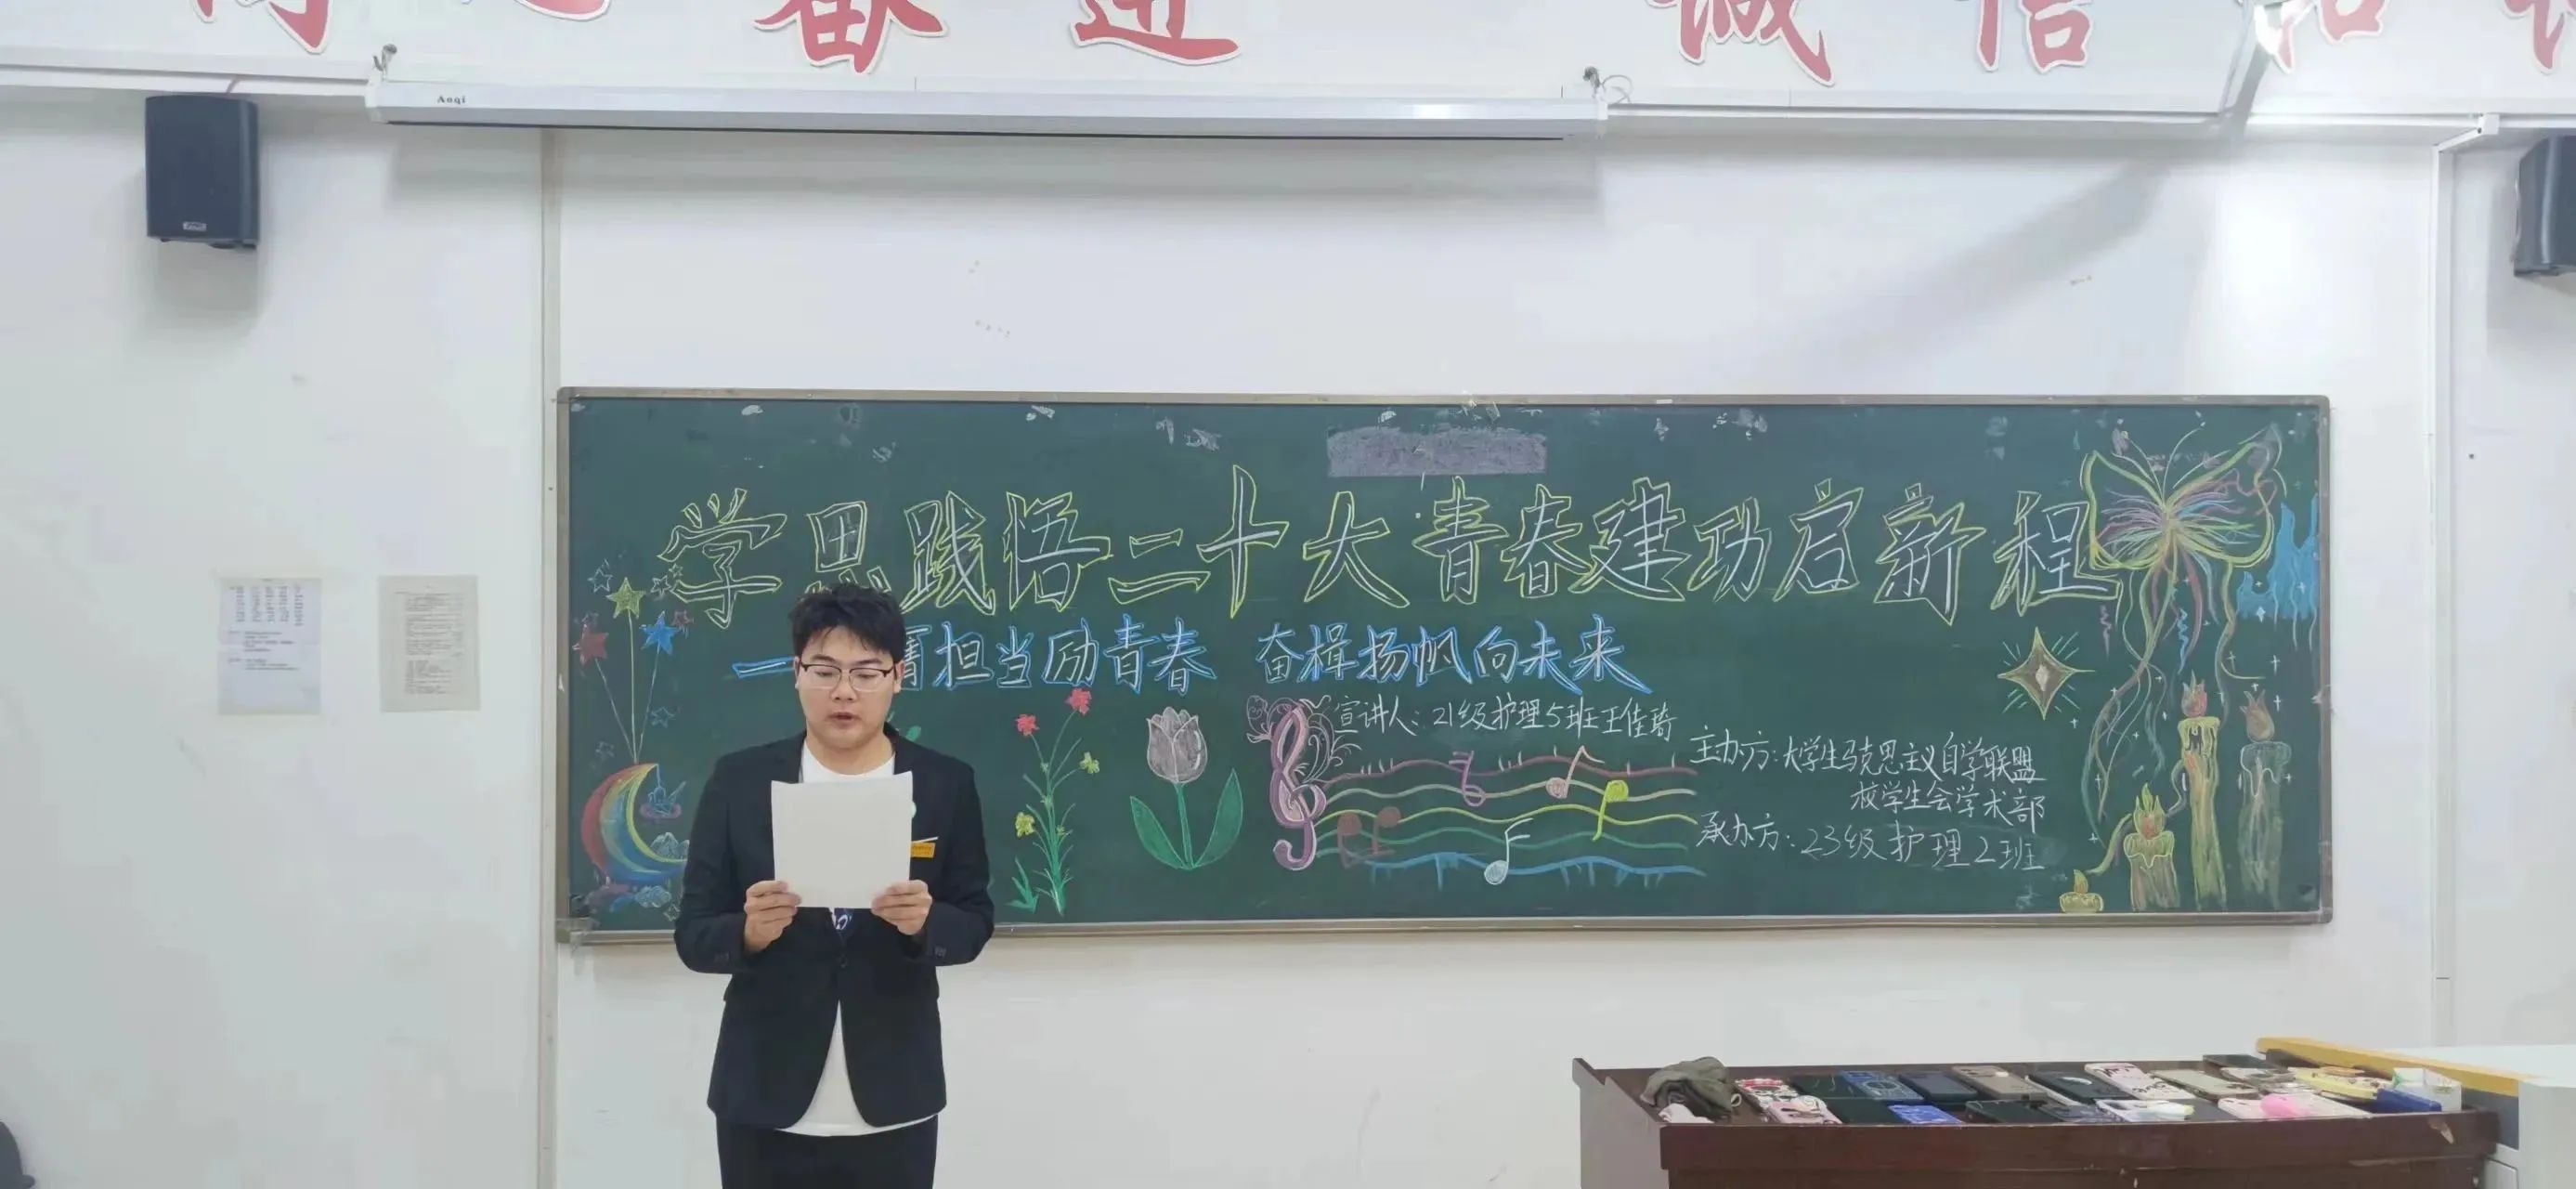 奋进 诚信
Aoqi
学思践悟二十大青春建功启新程
担当励青春 奋楫扬帆向未来
宣讲人：21级护理5班王佳琦
主办方：大学生马克思主义自学联盟
校学生会学术部
承办方：23级护理2班